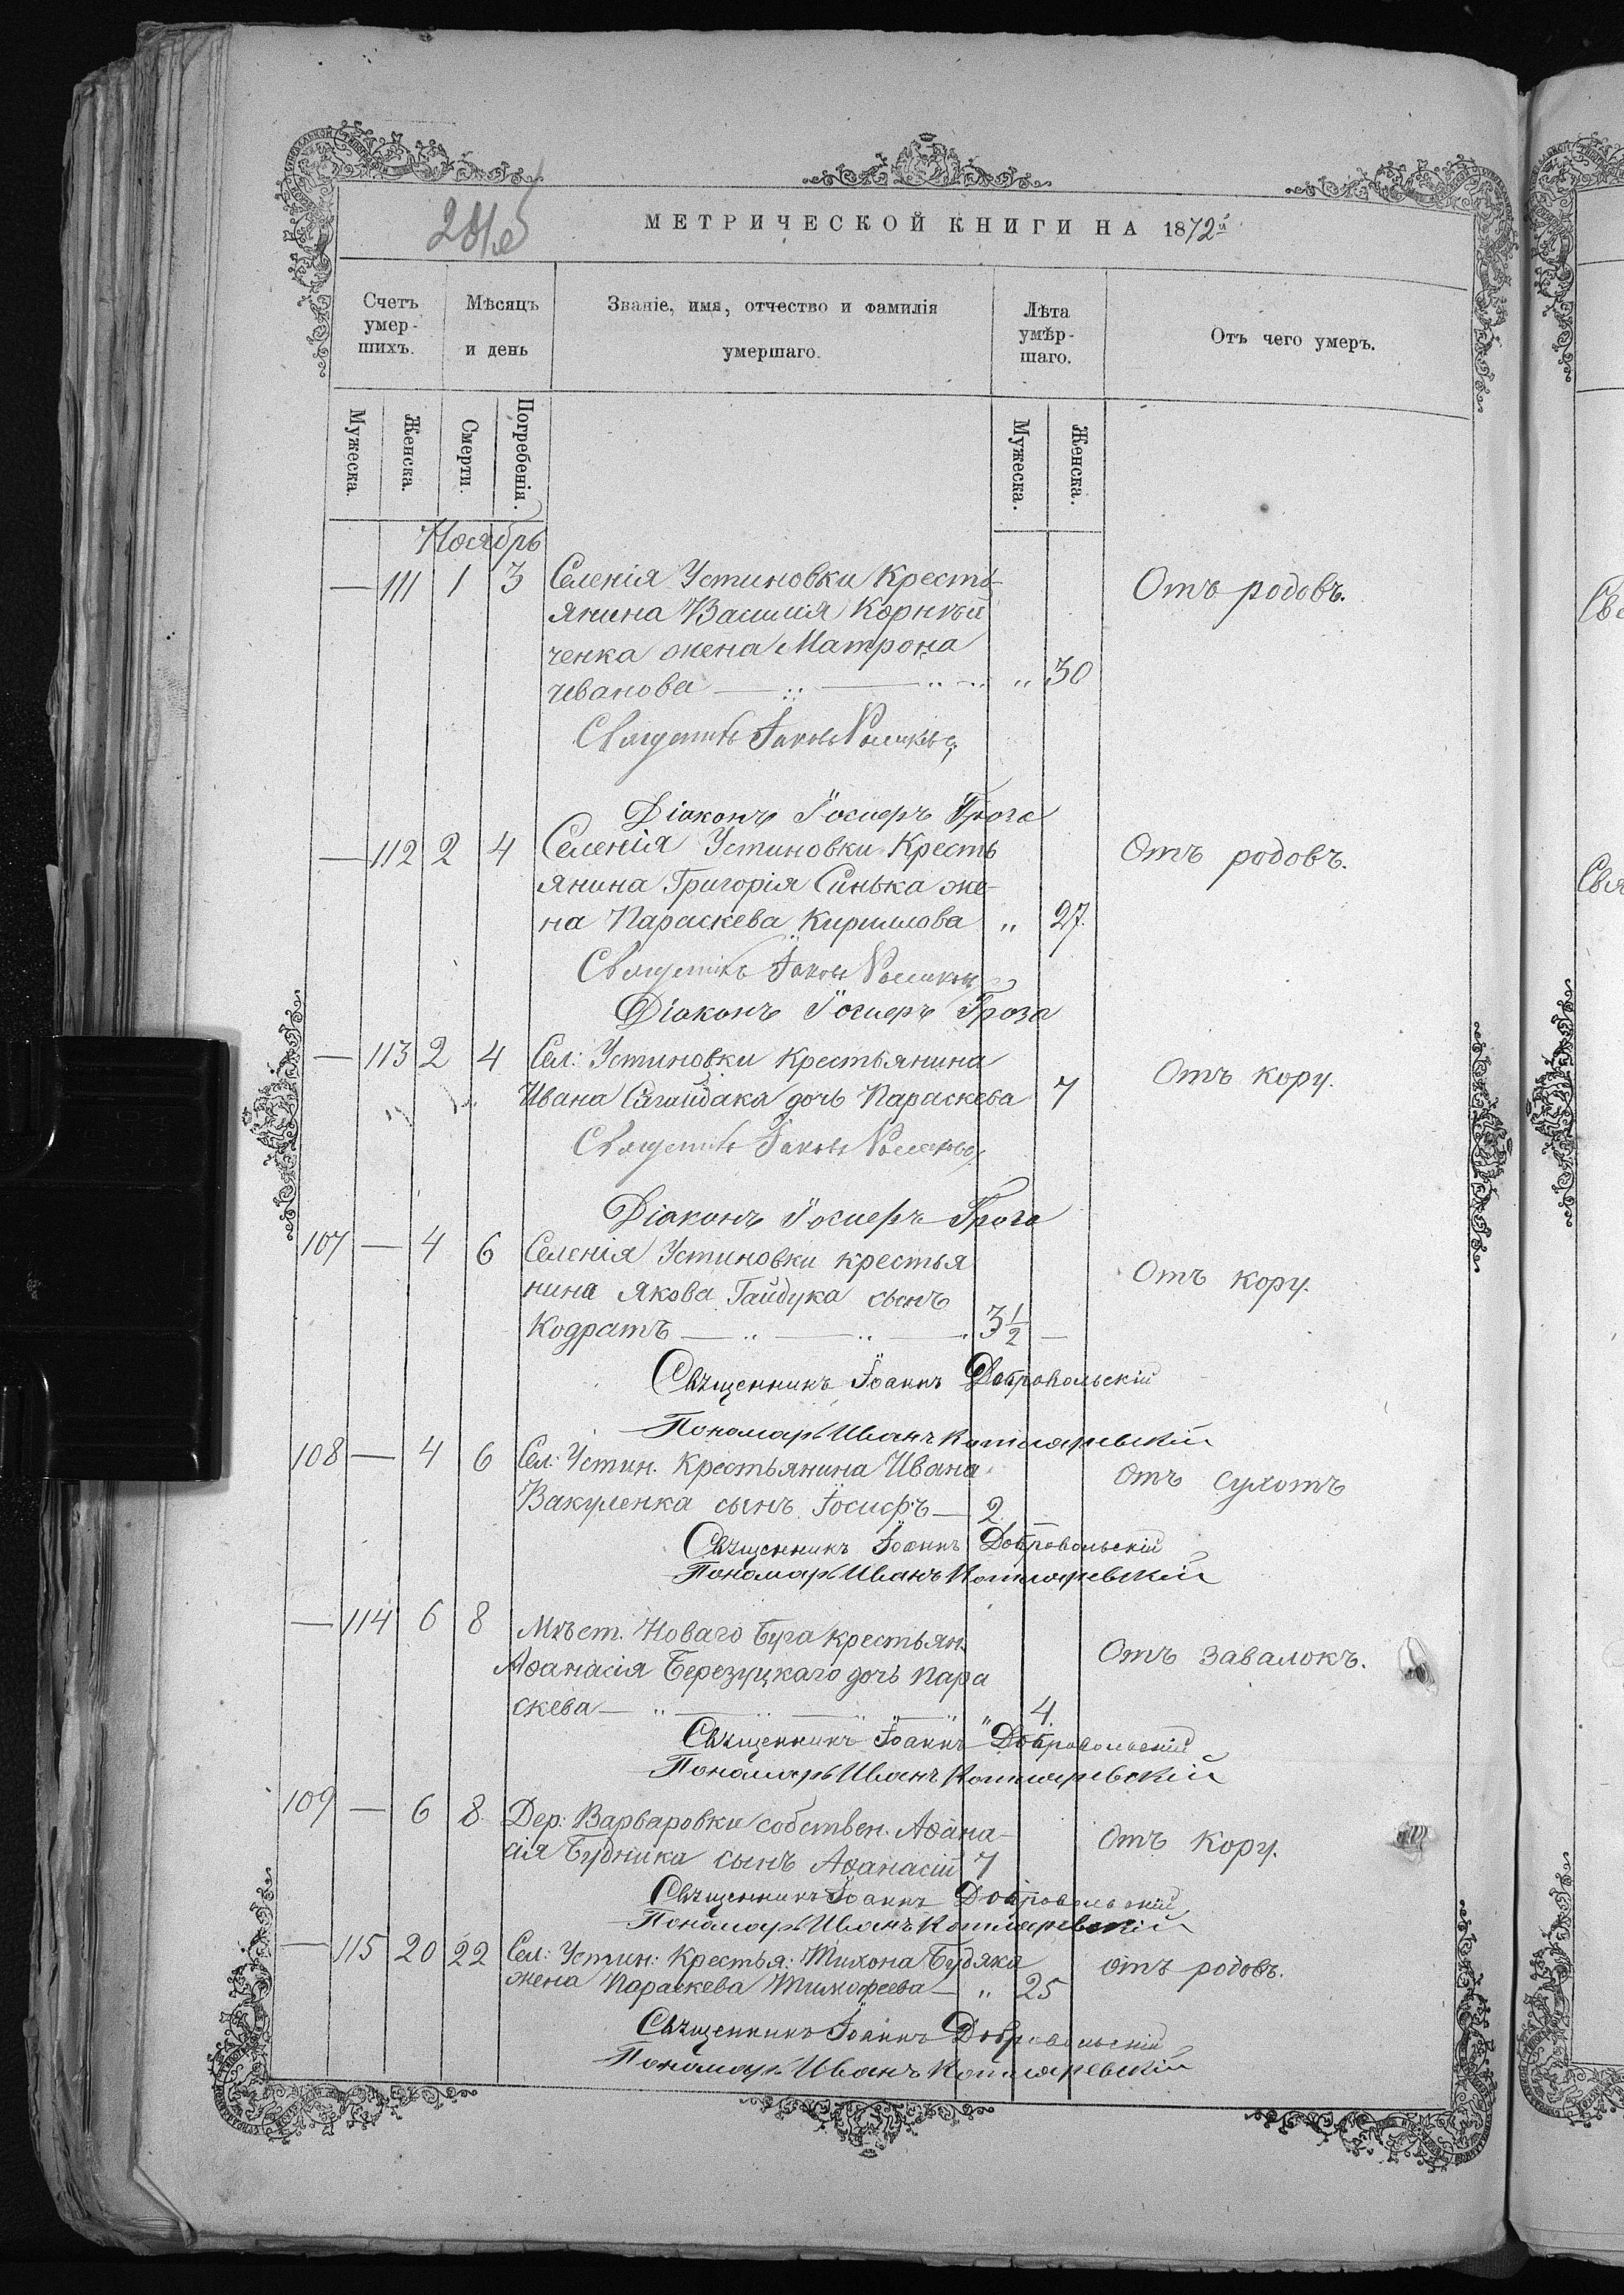 МЕТРИЧЕСКОЙ КНИГИ НА 1872й
Счетъ умер-шихъ. Мѣсяцъ и день Званіе, имя, отчество и фамилія умершаго. Лѣта умѣр-шаго. Отъ чего умеръ.
Мужеска. Женска. Смерти. Погребенія. Мужеска. Женска.
Ноябрь
— 111 1 3 Селенія Устиновки Кресть- Отъ родовъ.
янина Василія Корнѣй
ченка жена Матрона
Иванова — „ — „ „ „ 30
Священикъ Іаковъ
Діаконъ Іосифъ Гроза
— 112 2 4 Селенія Устиновки Кресть Отъ родовъ.
янина Григорія Синька же-
на Параскева Кириллова „ 27.
Священикъ Іаковъ
Діаконъ Іосифъ Гроза
— 113 2 4 Сел: Устиновки Крестьянина Отъ кору.
Ивана Сагайдака дочь Параскева 7
Священикъ Іаковъ
Діаконъ Іосифъ Гроза
107 — 4 6 Селенія Устиновки крестья Отъ кору.
нина Якова Гайдука сынъ
Кодратъ — „ — „ — „ 3 1/2 —
Священникъ Іоаннъ Добровольскій
Пономарь Иванъ Котляревскій
108 — 4 6 Сел: Устин. Крестьянина Ивана Отъ сухотъ
Вакуленка сынъ Іосифъ — 2. —
Священникъ Іоаннъ Добровольскій
Пономарь Иванъ Котляревскій
— 114 6 8 Мѣст. Новаго Буга крестьян. Отъ завалокъ.
Аѳанасія Березуцкаго дочь Пара
скева — „ — „ — „ — „ „ 4.
Священникъ Іоаннъ Добровольскій
Пономарь Иванъ Котляревскій
109 — 6 8 Дер: Варваровки собствен. Аѳана- Отъ кору.
сія Будника сынъ Аѳанасій 7
Священникъ Іоаннъ Добровольскій
Пономарь Иванъ Котляревскій
— 115 20 22 Сел: Устин: Крестья: Тихона Будяка отъ родовъ.
жена Параскева Тимофеева — „ 25
Священникъ Іоаннъ Добровольскій
Пономарь Иванъ Котляревскій